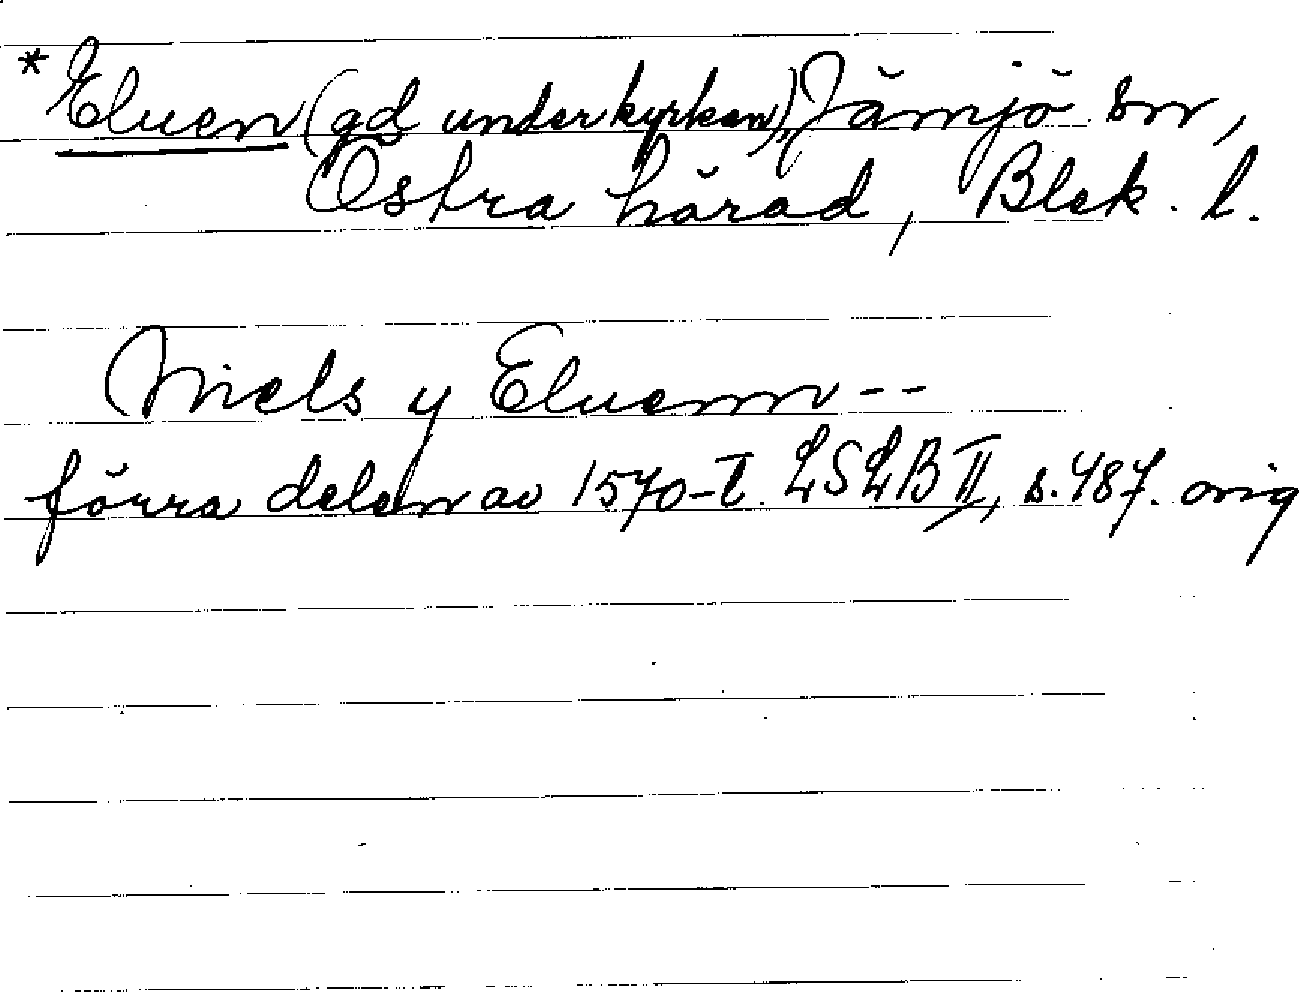 *Eluen (gd under kyrkan), Jämjö sn,
Östra härad, Blek. l.
Niels y Eluenn --
förra delen av 1570-t. LSLB II, s. 487. orig